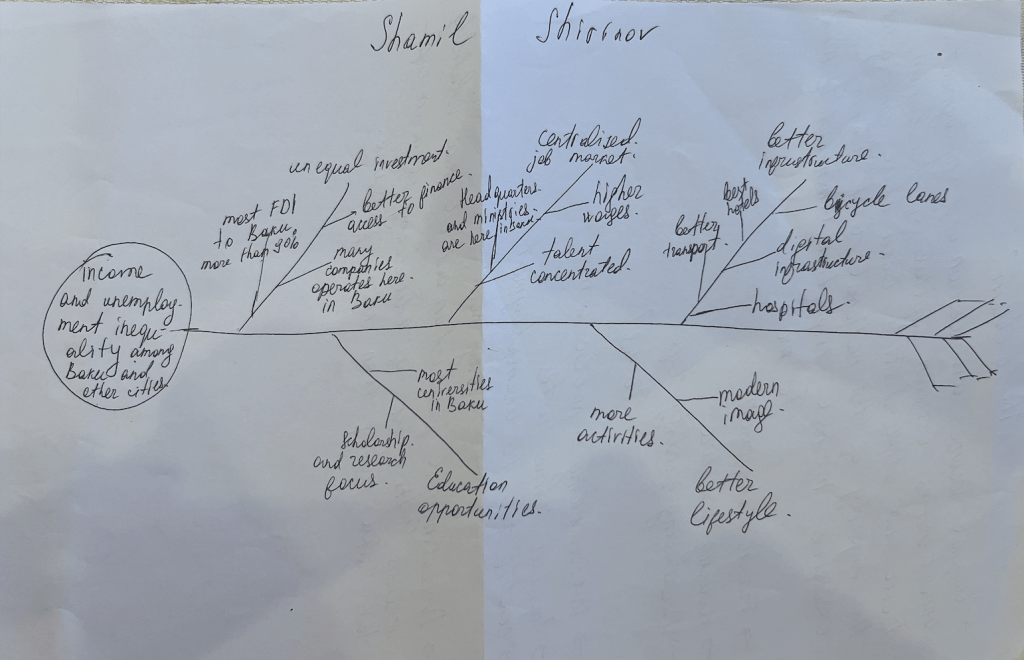 Shamil Shirinov
income
and unemploy-
ment inequ-
ality among
Baku and
other cities.
unequal investment.
most FDI
to Baku.
more than 90%
better finance.
access to
many
companies
operates here.
in Baku
centralised
job market.
Headquarters
and ministries.
are here in Baku
higher
wages.
talent
concentrated.
better
infrustructure.
best
hotels
better
transport.
bicycle lanes
digital
infrastructure.
hospitals.
most
universities
in Baku
scholarship.
and research
focus.
Education
opportunities.
more
activities.
modern
image.
better
lifestyle.